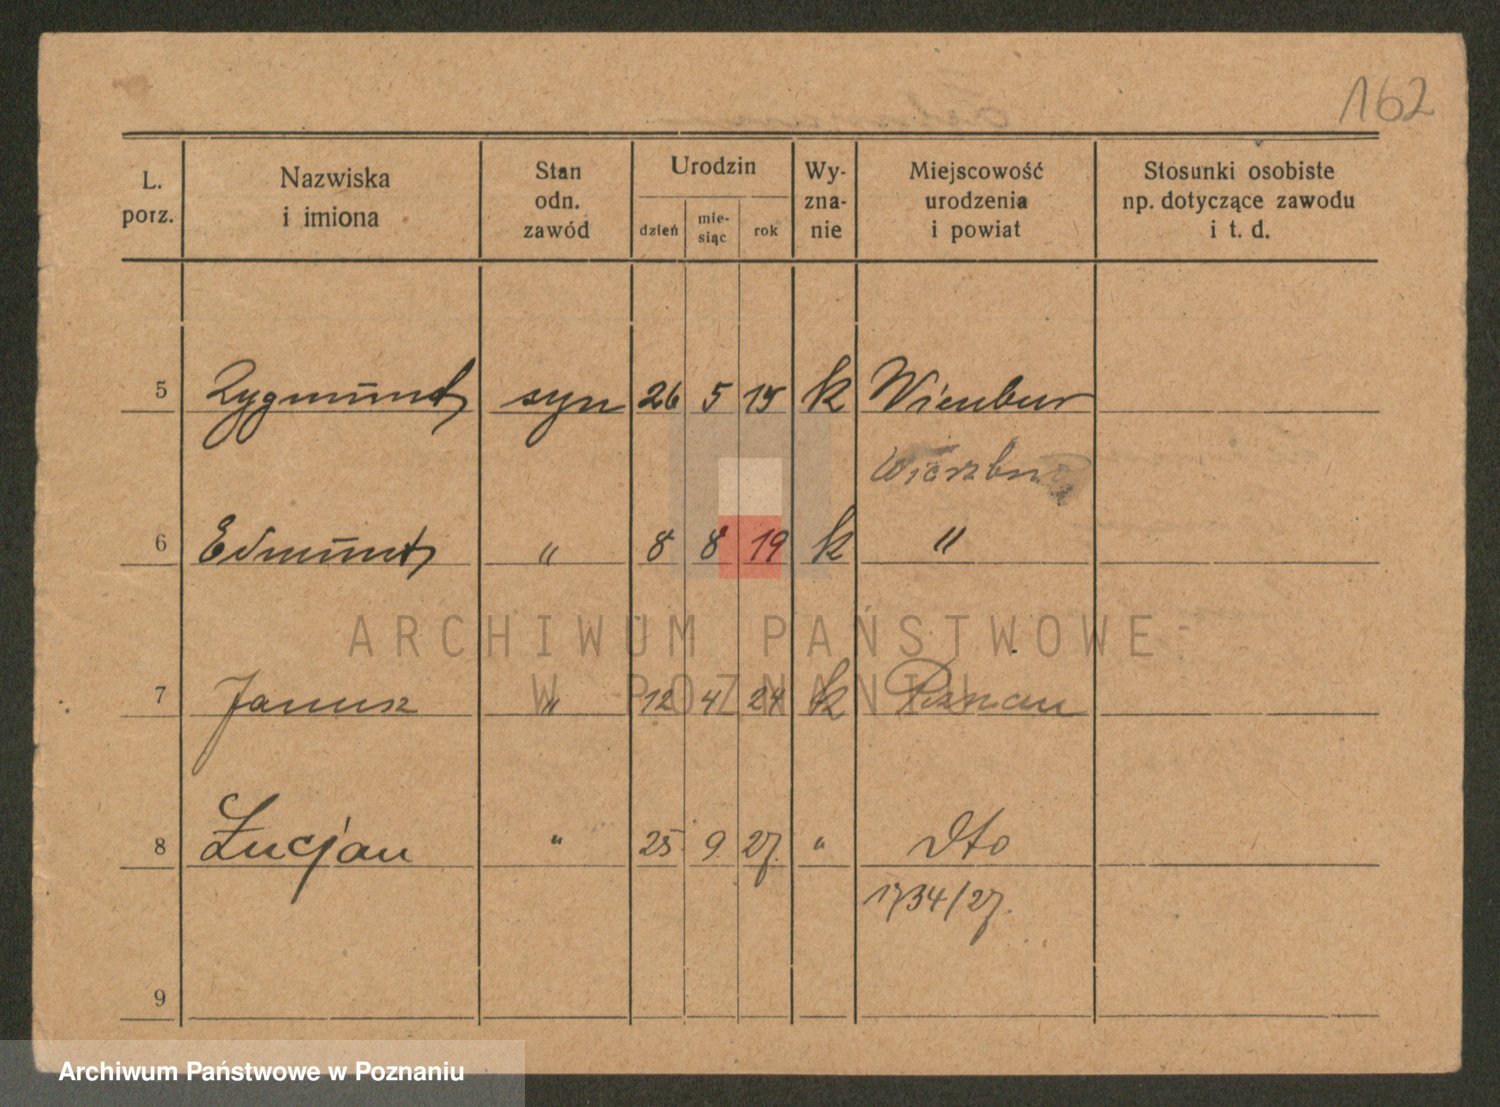 162
L. porz.
Nazwiska i imiona
Stan odn. zawód
Urodzin
dzień
mie- siąc
rok
Wy- zna- nie
Miejscowość urodzenia i powiat
Stosunki osobiste np. dotyczące zawodu i t. d.
5 Zygmunt syn 26 5 15 k
6 Edmund " 8 8 19 k "
ARCHIWUM PAŃSTWOWE
W POZNANIU
7 Janusz " 12 4 24 k Poznań
8 Łucjan " 25 9 27. " dto
1734/27.
9
Archiwum Państwowe w Poznaniu